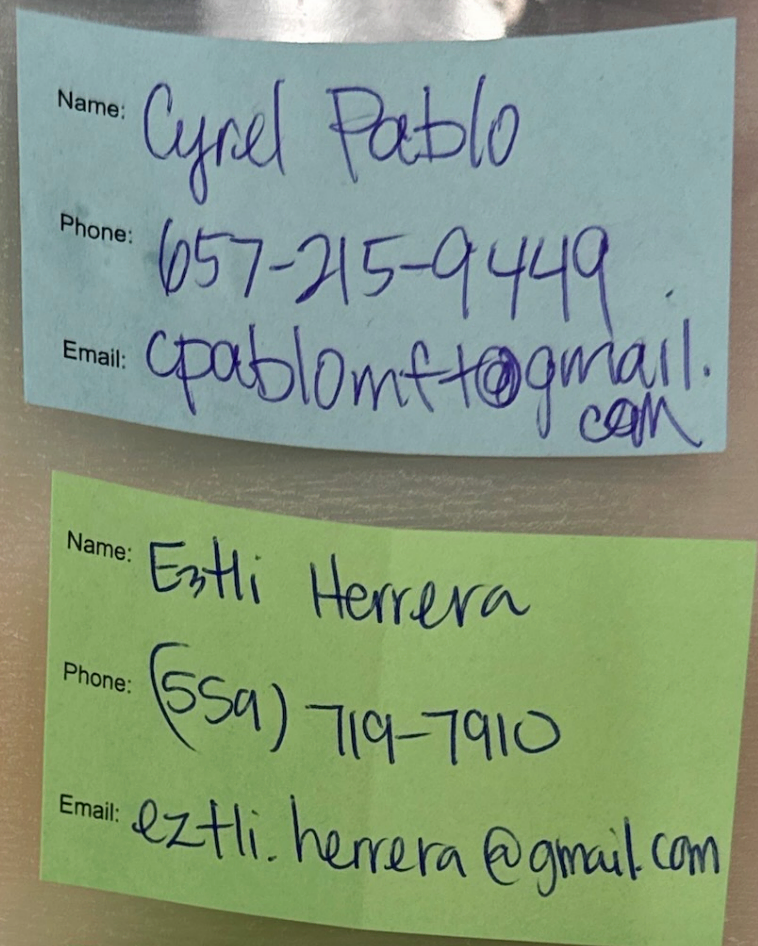 Name: Cyrel Pablo
Phone: 657-215-9449
Email: cpablomft@gmail.
com
Name: Eztli Herrera
Phone: (559) 719-7910
Email: eztli.herrera@gmail.com